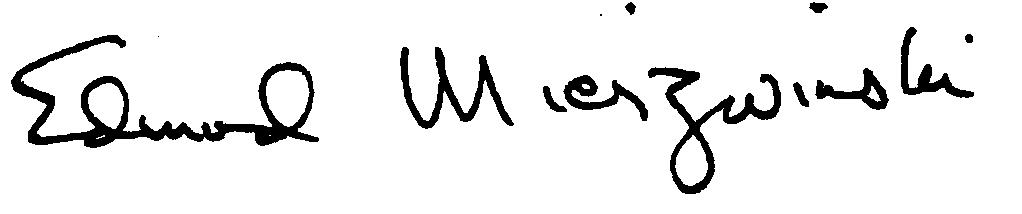 Edmund Mierzwinski